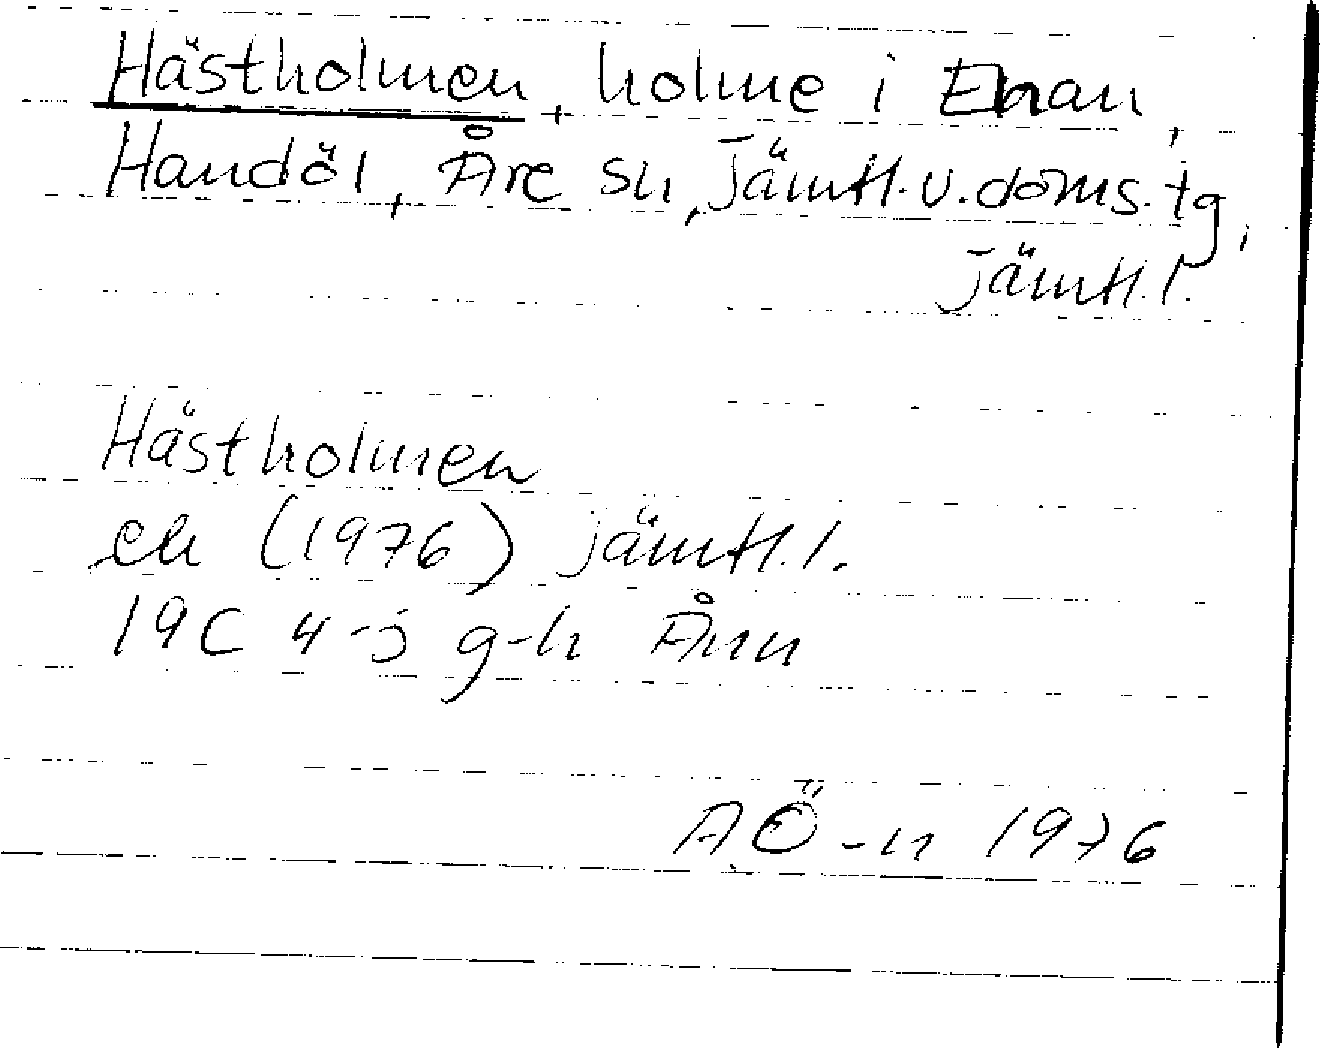 Hästholmen, holme i Enan,
Handöl, Åre sn, Jämtl. v. doms. tg,
Jämtl. l.
Hästholmen
ek (1976) Jämtl. l.
19C 4-j g-h Ånn
AÖ-n 1976